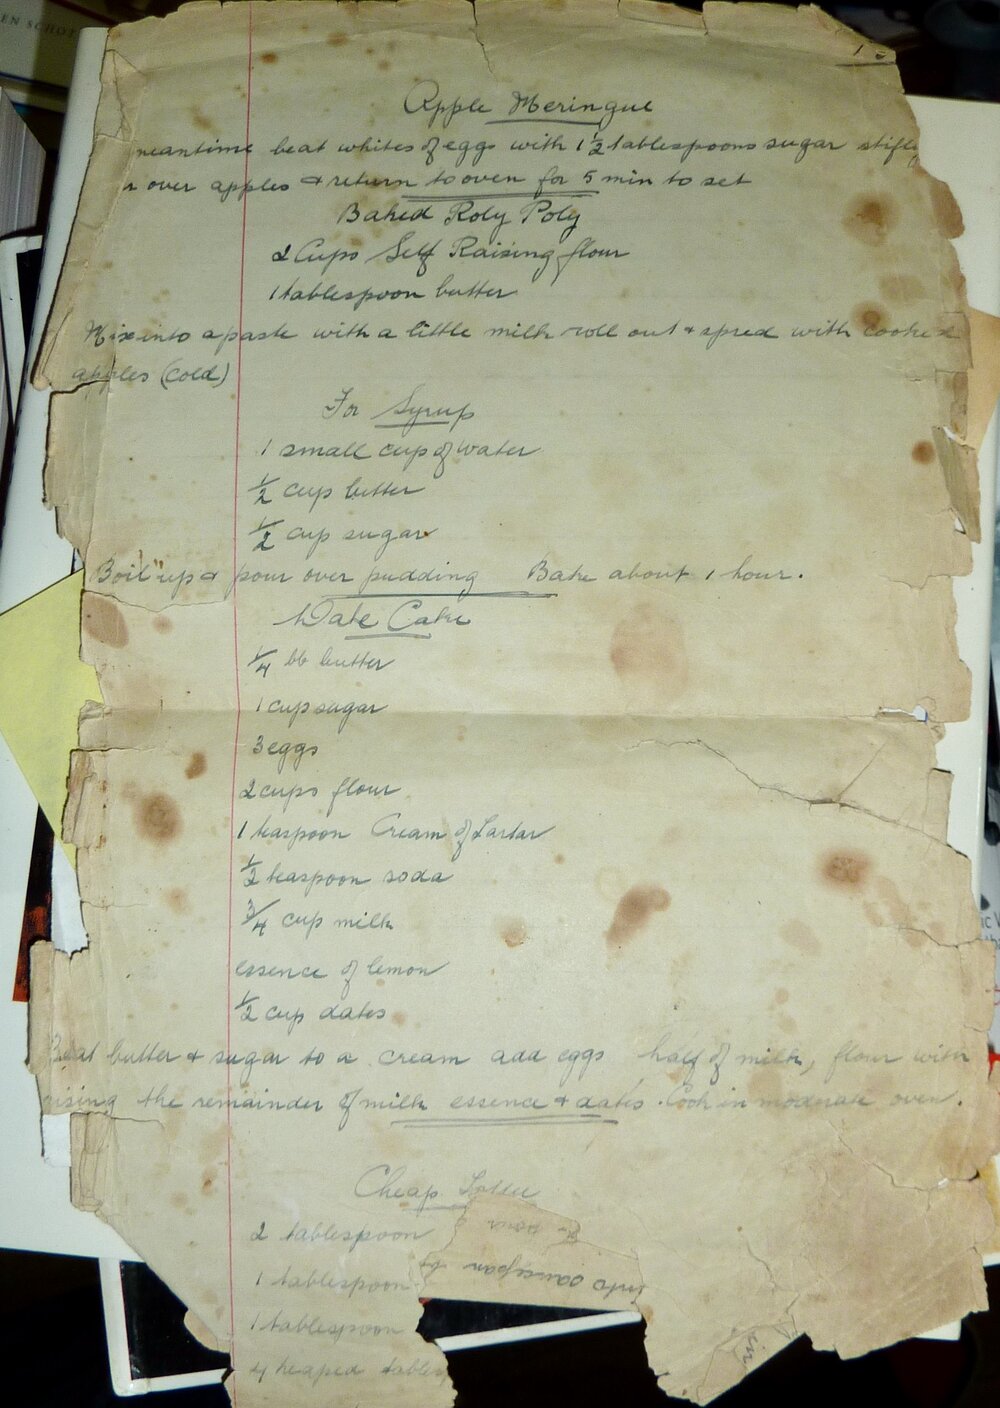 EN SCHOT
Apple Meringue
meantime beat whites of eggs with 1 1/2 tablespoons sugar stiffly
over apples & return to oven for 5 min to set
Baked Roly Poly
2 Cups Self Raising flour
1 tablespoon butter
Mix into a paste with a little milk roll out & spred with cooked
apples (cold)
For Syrup
1 small cup of water
1/2 cup butter
1/2 cup sugar
Boil up & pour over pudding Bake about 1 hour.
Date Cake
1/4 lb butter
1 cup sugar
3 eggs
2 cups flour
1 teaspoon Cream of Tartar
1/2 teaspoon soda
3/4 cup milk
essence of lemon
1/2 cup dates
Beat butter & sugar to a cream add eggs half of milk, flour with
rising the remainder of milk essence & dates. Cook in moderate oven.
Cheap
2 tablespoon
1 tablespoon
1 tablespoon
4 heaped tables
into saucepan